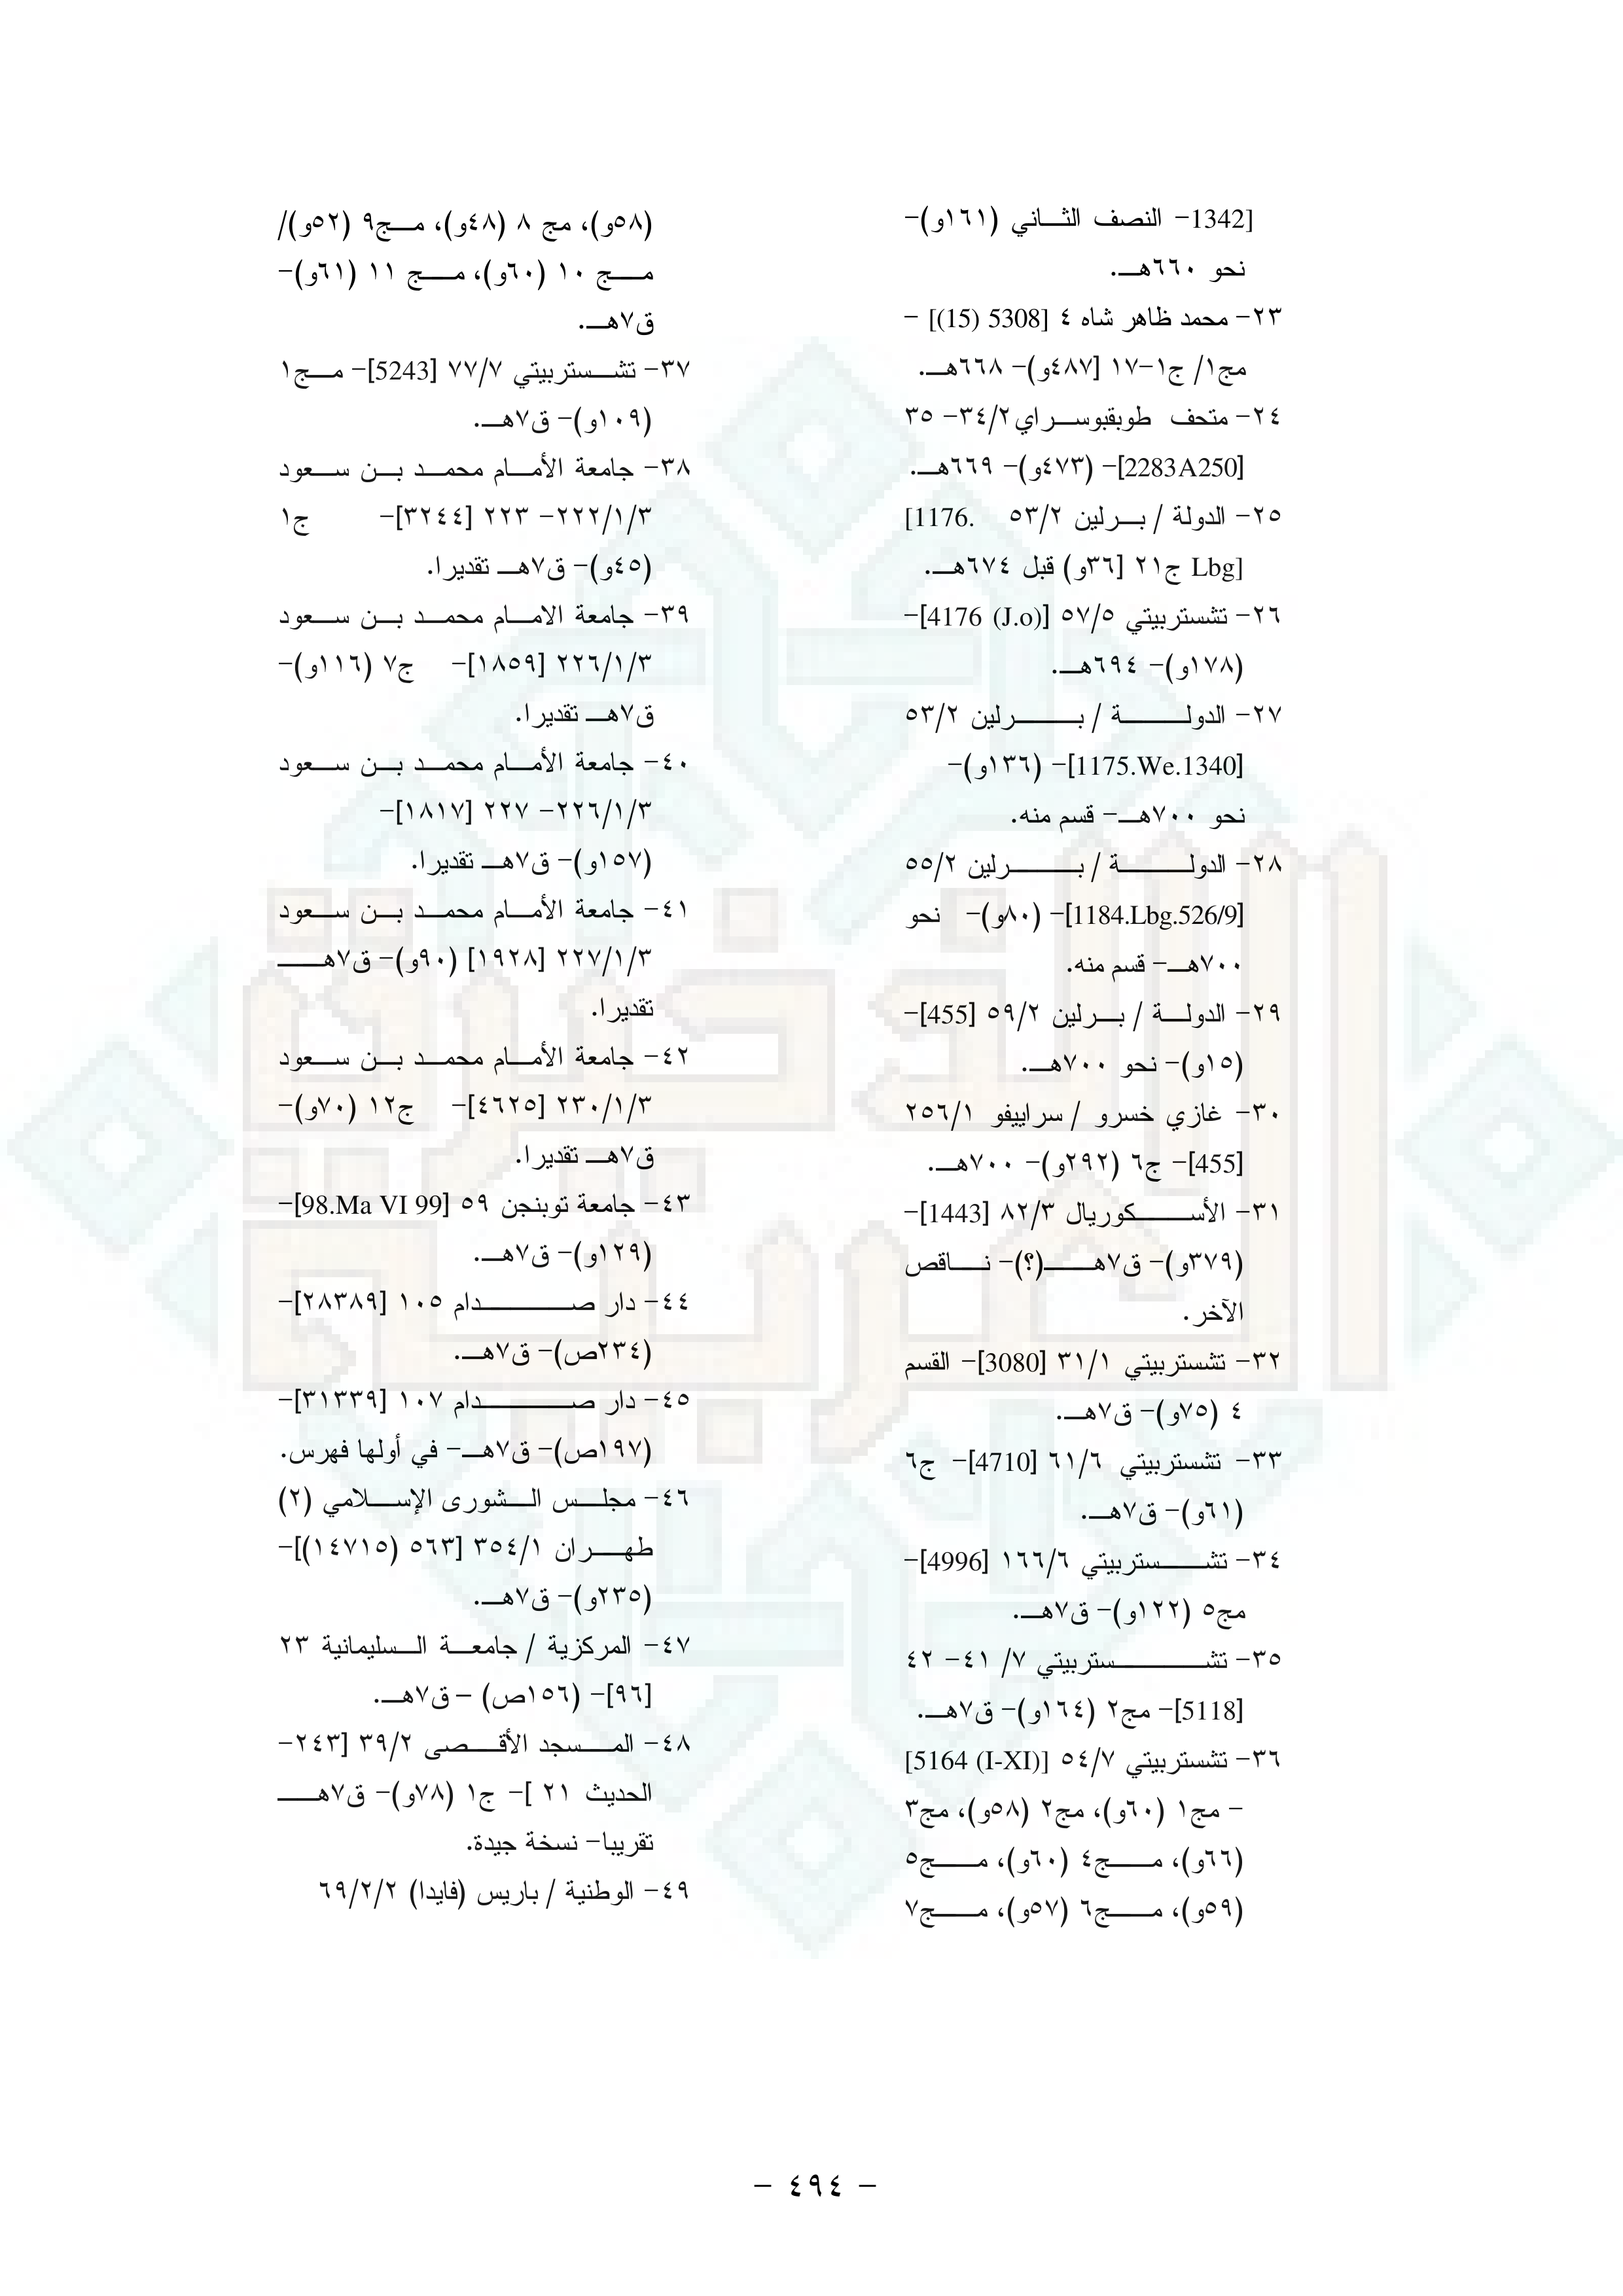 1342]- النصف الثاني (١٦١و)-
نحو ٦٦٠هـ.
٢٣- محمد ظاهر شاه ٤ [5308 (15)] -
مج١/ ج١-١٧ [٤٨٧و)- ٦٦٨هـ.
٢٤- متحف طوبقبوسراي٣٤/٢- ٣٥
[2283A250]- (٤٧٣و)- ٦٦٩هـ.
٢٥- الدولة / برلين ٥٣/٢ [1176.
Lbg] ج٢١ [٣٦و) قبل ٦٧٤هـ.
٢٦- تشستربيتي ٥٧/٥ [4176 (J.o)]-
(١٧٨و)- ٦٩٤هـ.
٢٧- الدولة / برلين ٥٣/٢
[1175.We.1340]- (١٣٦و)-
نحو ٧٠٠هـ- قسم منه.
٢٨- الدولة / برلين ٥٥/٢
[1184.Lbg.526/9]- (٨٠و)- نحو
٧٠٠هـ- قسم منه.
٢٩- الدولة / برلين ٥٩/٢ [455]-
(١٥و)- نحو ٧٠٠هـ.
٣٠- غازي خسرو / سراييفو ٢٥٦/١
[455]- ج٦ (٢٩٢و)- ٧٠٠هـ.
٣١- الأسكوريال ٨٢/٣ [1443]-
(٣٧٩و)- ق٧هـ(؟)- ناقص
الآخر.
٣٢- تشستربيتي ٣١/١ [3080]- القسم
٤ (٧٥و)- ق٧هـ.
٣٣- تشستربيتي ٦١/٦ [4710]- ج٦
(٦١و)- ق٧هـ.
٣٤- تشستربيتي ١٦٦/٦ [4996]-
مج٥ (١٢٢و)- ق٧هـ.
٣٥- تشستربيتي ٧/ ٤١- ٤٢
[5118]- مج٢ (١٦٤و)- ق٧هـ.
٣٦- تشستربيتي ٥٤/٧ [5164 (I-XI)]
- مج١ (٦٠و)، مج٢ (٥٨و)، مج٣
(٦٦و)، مج٤ (٦٠و)، مج٥
(٥٩و)، مج٦ (٥٧و)، مج٧
(٥٨و)، مج ٨ (٤٨و)، مج٩ (٥٢و)/
مج ١٠ (٦٠و)، مج ١١ (٦١و)-
ق٧هـ.
٣٧- تشستربيتي ٧٧/٧ [5243]- مج١
(١٠٩و)- ق٧هـ.
٣٨- جامعة الأمام محمد بن سعود
٢٢٢/١/٣- ٢٢٣ [٣٢٤٤]- ج١
(٤٥و)- ق٧هـ تقديرا.
٣٩- جامعة الامام محمد بن سعود
٢٢٦/١/٣ [١٨٥٩]- ج٧ (١١٦و)-
ق٧هـ تقديرا.
٤٠- جامعة الأمام محمد بن سعود
٢٢٦/١/٣- ٢٢٧ [١٨١٧]-
(١٥٧و)- ق٧هـ تقديرا.
٤١- جامعة الأمام محمد بن سعود
٢٢٧/١/٣ [١٩٢٨] (٩٠و)- ق٧هـ
تقديرا.
٤٢- جامعة الأمام محمد بن سعود
٢٣٠/١/٣ [٤٦٢٥]- ج١٢ (٧٠و)-
ق٧هـ تقديرا.
٤٣- جامعة توبنجن ٥٩ [98.Ma VI 99]-
(١٢٩و)- ق٧هـ.
٤٤- دار صدام ١٠٥ [٢٨٣٨٩]-
(٢٣٤ص)- ق٧هـ.
٤٥- دار صدام ١٠٧ [٣١٣٣٩]-
(١٩٧ص)- ق٧هـ- في أولها فهرس.
٤٦- مجلس الشورى الإسلامي (٢)
طهران ٣٥٤/١ [٥٦٣ (١٤٧١٥)]-
(٢٣٥و)- ق٧هـ.
٤٧- المركزية / جامعة السليمانية ٢٣
[٩٦]- (١٥٦ص) – ق٧هـ.
٤٨- المسجد الأقصى ٣٩/٢ [٢٤٣-
الحديث ٢١ ]- ج١ (٧٨و)- ق٧هـ
تقريبا- نسخة جيدة.
٤٩- الوطنية / باريس (فايدا) ٦٩/٢/٢
- ٤٩٤ -
الذخيرة
العربية